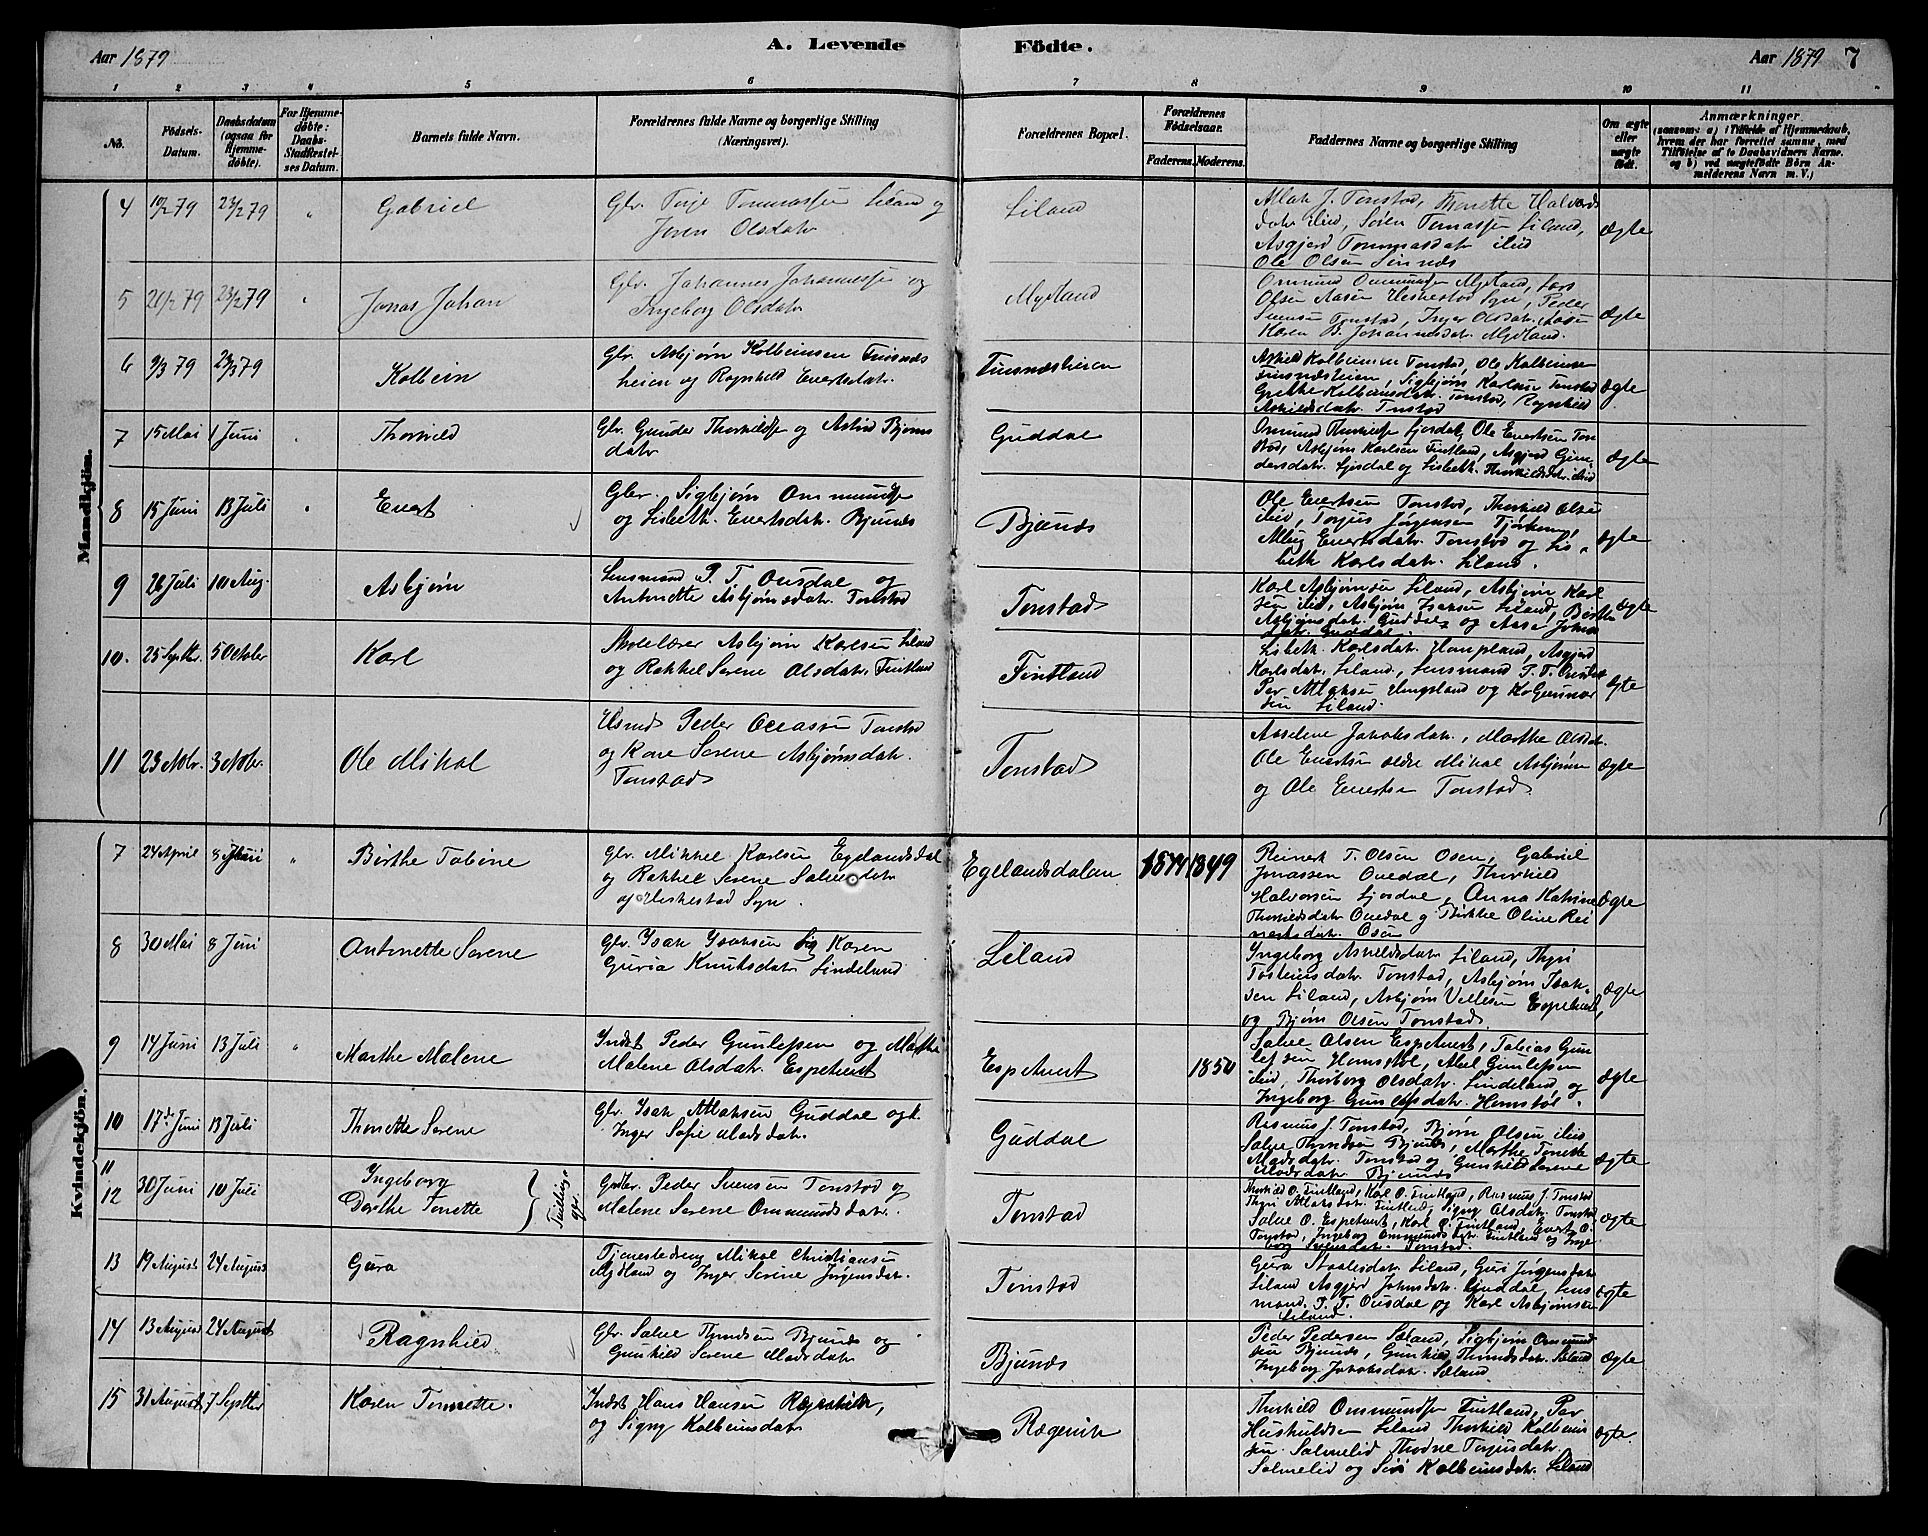 Aar 1879
A. Levende Födte.
Aar 1879 7
1 2 3 4 5 6 7 8 9 10 11
No.
Födsels-Datum.
Daabsdatum (ogsaa for Hjemme-döbte).
For Hjemme-döbte: Daabs-Stadfæstel-ses Datum.
Barnets fulde Navn.
Forældrenes fulde Navne og borgerlige Stilling (Næringsvei).
Forældrenes Bopæl.
Forældrenes Födselsaar.
Faderens. Moderens.
Faddernes Navne og borgerlige Stilling
Om ægte eller uægte födt.
Anmærkninger.
(saasom: a) i Tilfælde af Hjemmedaab, hvem der har forrettet samme, med Tilföielse af to Daabsvidners Navne. og b) ved uægtefödte Börn An-melderens Navn m. V.)
Mandkjön.
4 10/2 79 23/2 79 " Gabriel
Gbr. Terje Tommassen Liland og
Joren Olsdatr
Liland
Atlak J. Tonstad, Tonette Halvords
datr ibid, Sören Tomassen Liland,
Asgjerd Tommasdatr ibid
Ole Olsen Sirnæs
ægte
5 20/2 79 23/2 79 " Jonas Johan
Gbr. Johannes Johannessen og
Ingeborg Olsdatr
Mydland
Ommund Ommundsen Mydland, Lars
Olsen Aasen Heskestad Sgn, Peder
Svensen Tonstad, Inger Olsdatr. Aasen
Karen B. Johannesdatr Mydland.
ægte
6 9/3 79 23/3 79 Kolbein
Gbr. Asbjørn Kolbeinsen Finsnæs
heien og Ragnhild Evertsdatr.
Finsnæsheien
Askild Kolbeinsen Tonstad, Ole Kolbeinsen
Finsnæsheien, Sigbjørn Karlsen Tonstad
Grethe Kolbeinsdatr. Tonstad, Ragnhild
Askildsdatr. Tonstad
ægte
7 15 Mai 1 Juni " Thorkild
Gbr. Gunder Thorkildsen og Astrid Bjørns
datr
Guddal
Omund Thorkildsen Ljosdal, Ole Evertsen Ton
stad, Asbjørn Karlsen Fintland, Asgjerd Gun-
dersdatr. Ljosdal og Lisbeth Thorkildsdatr. ibid
ægte
8 15 Juni 13 Juli " Evert
Gbr. Sigbjørn Ommundsen
og Lisbeth Evertsdatr. Bjunæs
Bjunæs
Ole Evertsen Tonstad, Thorkild Olsen
ibid, Torjus Jørgensen Tjørhom,
Evertsdatr. Tonstad og Lis
beth Karlsdatr. Liland.
ægte
9 26 Juli 10 Aug. Asbjørn
Lensmand P. T. Ousdal og
Antonette Asbjørnsdatr. Tonstad
Tonstad
Karl Asbjørnsen Liland, Asbjørn Karl
sen ibid, Asbjørn Isaksen Liland, Birthe
Asbjørnsdatr. Guddal og Aase Johns
datr. Guddal.
ægte
10. 25 Septbr. 5 October Karl
Skolelærer Asbjørn Karlsen Liland
og Rakkel Serene Olsdatr. Fintland
Fintland
Lisbeth Karlsdatr. Haugland, Asgjerd
Karlsdatr. Liland, Lensmand P. T. Ousdal
Per Atlaksen Haugland og K. Gunnar
sen Liland.
ægte
11 23 Octobr. Ole Mikal
Husmd Peder Tonstad
og Karen Serene Asbjørnsdatr.
Tonstad
Tonstad
Asselene Jakobsdatr., Marthe Olsdatr.
Ole Evertsen ældre Mikal Asbjørnsen
og Ole Evertsen Tonstad.
ægte
Kvindekjön.
7 24 April 8 Juni " Birthe Tobine
Gbr. Mikkel Karlsen Egelandsdal
og Rakkel Serene Salvesdatr
af Heskestad Sgn.
Egelandsdalen
1844 1849
Reinert T. Olsen Osen, Gabriel
Jonassen Ovedal, Thorkild
Halvorsen Ljosdal, Anna Katrine
Thorkildsdatr. Ovedal og Birthe Oline Rei
nertsdatr. Osen
ægte
8 30 Mai 8 Juni Antonette Serene
Gbr. Isak Isaksen og Karen
Guria Knutsdatr Lindeland
Liland
Ingeborg Askildsdatr Liland, Thyri
Tosteinsdatr. Tonstad, Asbjørn Isak-
sen Liland, Asbjørn Vellesen Espetveit,
og Bjørn Olsen Tonstad.
ægte
9 14 Juni 13 Juli " Marthe Malene
Indst Peder Gunlefsen og Marthe
Malene Olsdatr. Espetveit
Espetveit
1850
Salve Olsen Espetveit, Tobias Gun
lefsen Homstøl, Abel Gunlefsen
ibid, Thorborg Olsdatr. Lindeland og
Ingeborg Gunlefsdatr. Homstøl.
ægte
10 17de Juni 13 Juli Thonette Serene
Gbr. Isak Atlaksen Guddal og k.
Inger Sofie Madsdatr.
Guddal
Rasmus J. Tonstad, Bjørn Olsen ibid
Salve Thendsen Bjunæs, Marthe Tonette
Madsdatr. Tonstad og Gunhild Serene
Madsdatr Bjunæs
ægte
11
12 30 Juni 10 Juli Ingeborg
Dorthe Tonette
Tvillinger
Gbr. Peder Svensen Tonstad og
Malene Serene Ommundsdatr.
Tonstad
Thorkild O. Fintland, Karl O. Fintland, Rasmus J. Tonstad
Thyri Atlaksdatr. Fintland, Signy Olsdatr. Tonstad
Salve O. Espetveit, Karl O. Fintland, Evert O.
Tonstad, Ingeborg Ommundsdatr. Fintland og Inge
borg Svensdatr. Tonstad.
ægte
13 19 August 24 August Guro
Tjenestedreng Mikal Christiansen
Mydland og Inger Serene Jørgensdatr.
Tonstad
Guro Staalesdatr. Liland, Guri Jørgensdatr
Liland Asgjer Johnsdatr. Guddal, Lens
mand P. T. Ousdal og Karl Asbjørnsen
Liland.
ægte
14 13 August 24 August Ragnhild
Gbr. Salve Thendsen Bjunæs og
Gunhild Serene Madsdatr
Bjunæs
Peder Pedersen Sæland, Sigbjørn Ommund
sen Bjunæs, Gunhild Thendsdatr. Sæland
Ingeborg Jakobsdatr. Sæland.
ægte
15 31 August 7 Septbr Karen Tomette.
Indst Hans Hansen Rægevik,
og Signy Kolbeinsdatr
Rægevik
Thorkild Ommundsen Fintland, Per
Huskuldsen Liland Thorkild Kolbeins
sen Salmelid Thodne Torjusdatr.
Salmelid og Siri Kolbeinsdatr. Liland
ægte.